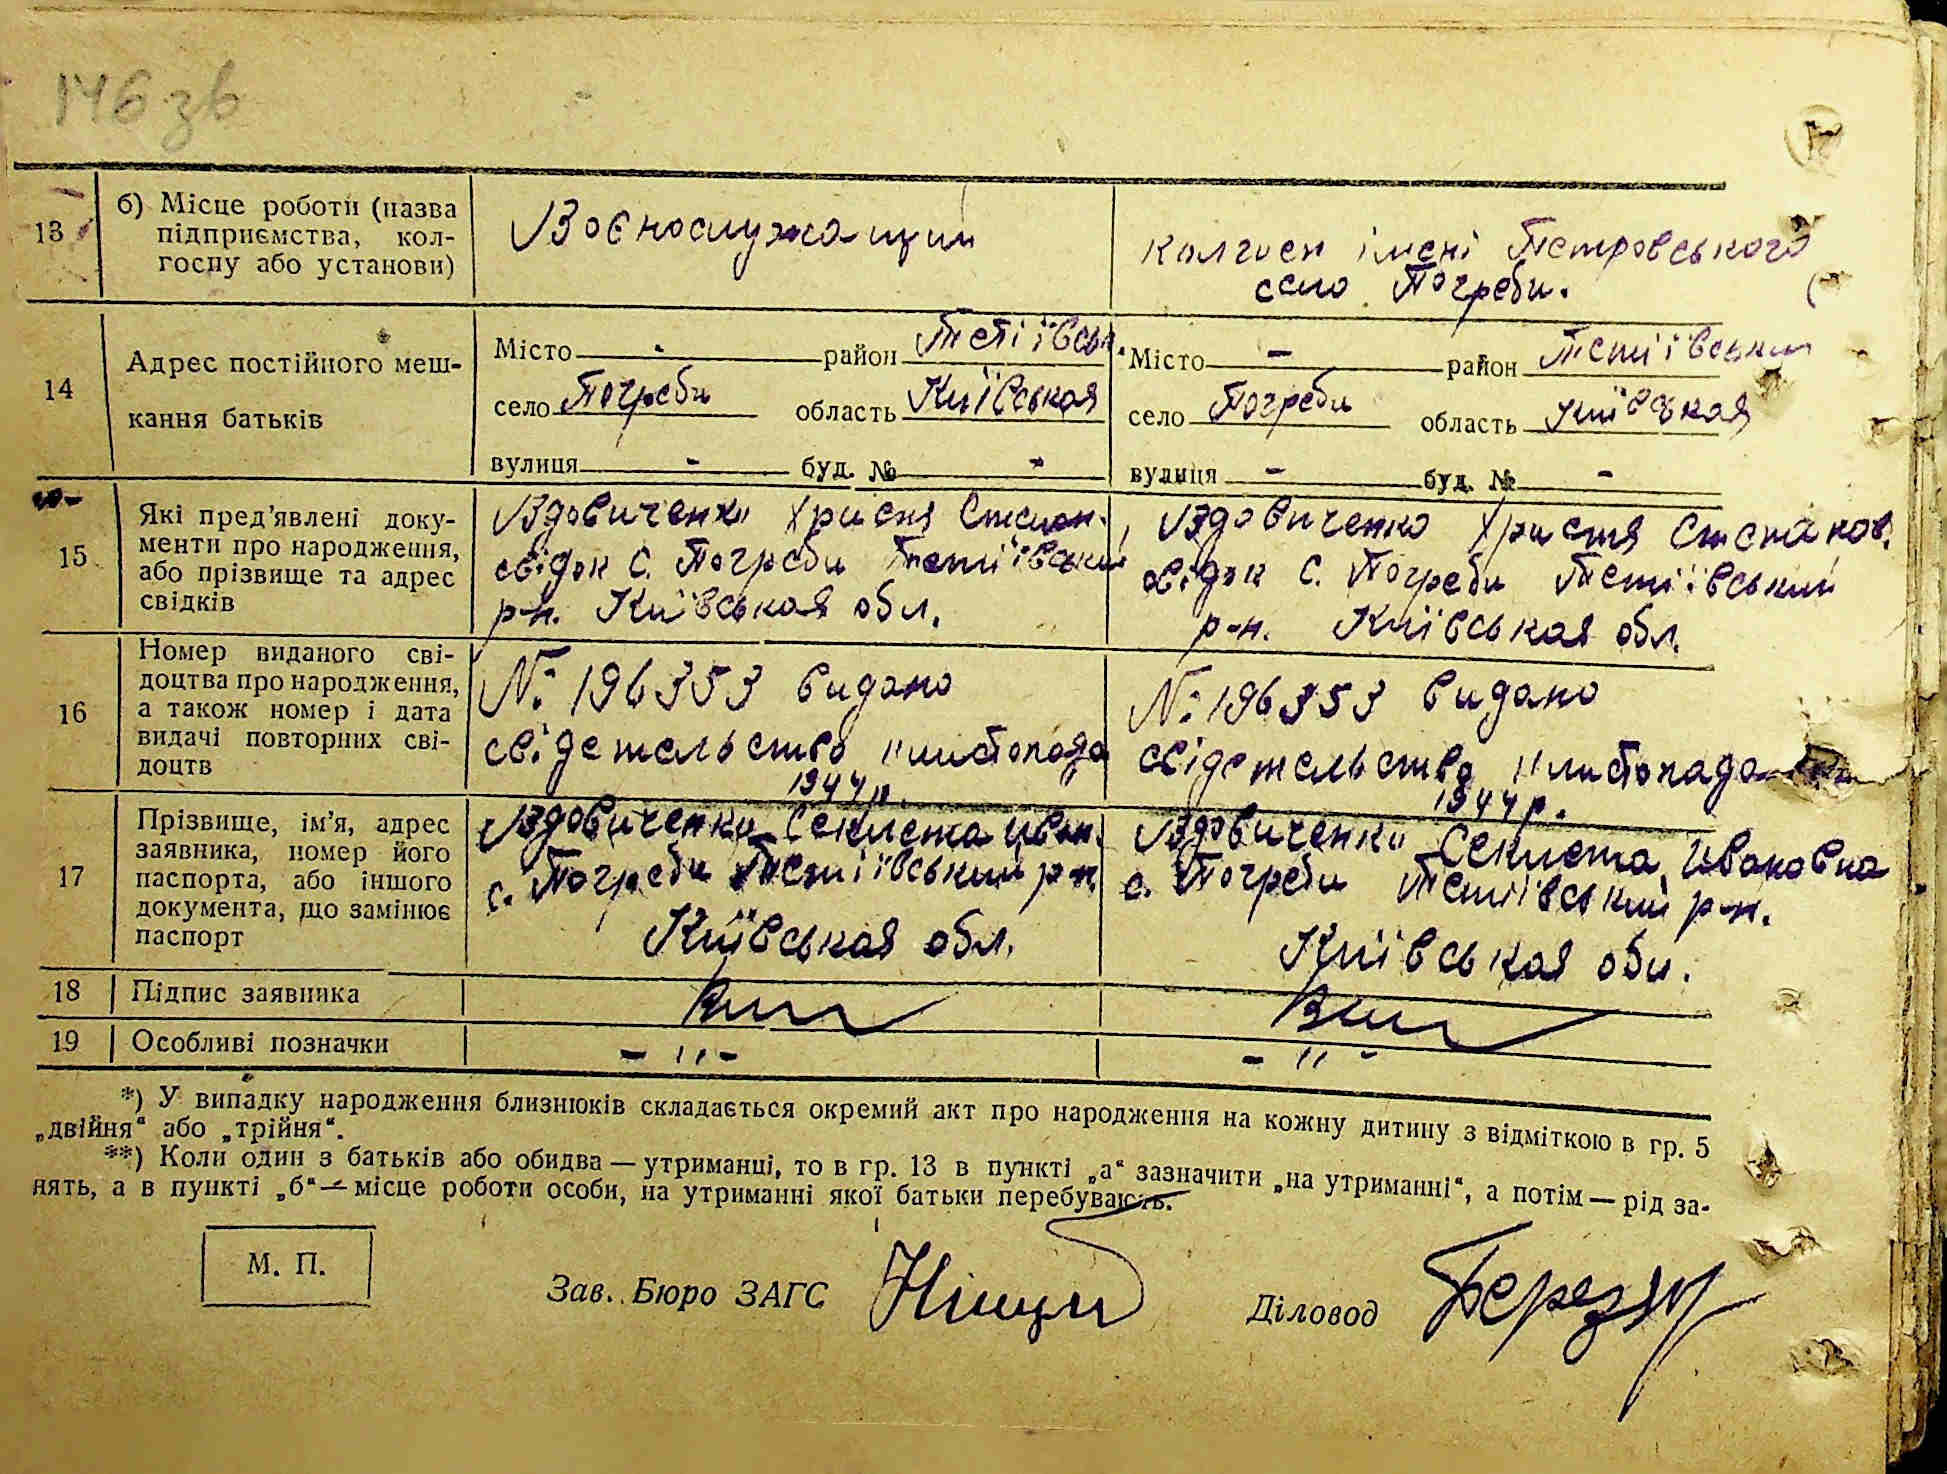 146 зв
13
б) Місце роботи (назва
підприємства, кол-
госпу або установи)
Воєнослужащий
колгосп імені Петровського
село Погреби.
14
Адрес постійного меш-
кання батьків
Місто - район Тетіївськ.
село Погреби область Київськая
вулиця - буд. № -
Місто - район Тетіївський
село Погреби область Київськая
вулиця - буд. № -
15
Які пред'явлені доку-
менти про народження,
або прізвище та адрес
свідків
Вдовиченко Христя Степан.
свідок с. Погреби Тетіївський
р-н. Київськая обл.
Вдовиченко Христя Степанов.
свідок с. Погреби Тетіївський
р-н. Київськая обл.
16
Номер виданого сві-
доцтва про народження,
а також номер і дата
видачі повторних сві-
доцтв
№ 196353 видано
свідетельство 11 листопада
1944 р.
№ 196353 видано
свідетельство 11 листопада
1944 р.
17
Прізвище, ім'я, адрес
заявника, номер його
паспорта, або іншого
документа, що замінює
паспорт
Вдовиченко Секлета Иван.
с. Погреби Тетіївський р-н
Київськая обл.
Вдовиченко Секлета Ивановна
с. Погреби Тетіївський р-н.
Київськая обл.
18
Підпис заявника
19
Особливі позначки
- " -
- " -
*) У випадку народження близнюків складається окремий акт про народження на кожну дитину з відміткою в гр. 5
„двійня“ або „трійня“.
**) Коли один з батьків або обидва — утриманці, то в гр. 13 в пункті „а“ зазначити „на утриманні“, а потім — рід за-
нять, а в пункті „б“ — місце роботи особи, на утриманні якої батьки перебувають.
М. П.
Зав. Бюро ЗАГС
Діловод